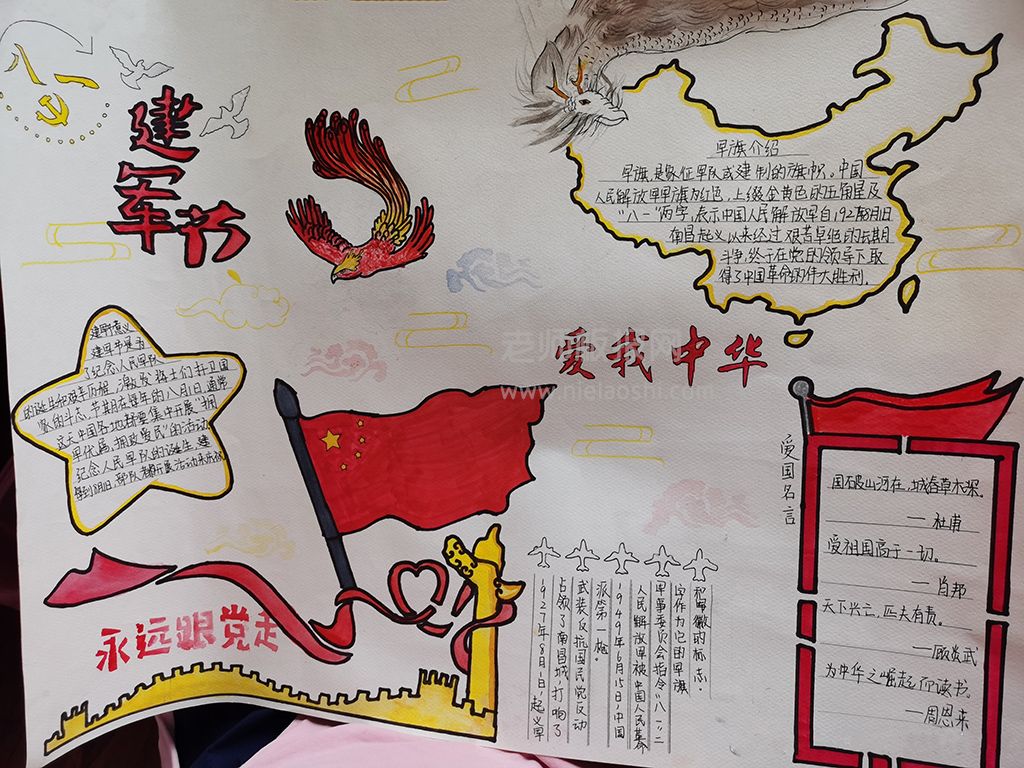 八一
建军节
军旗介绍
军旗是象征军队或建制的旗帜。中国
人民解放军军旗为红色,上缀金黄色的五角星及
"八一"两字,表示中国人民解放军自1927年8月1日
南昌起义以来经过艰苦卓绝的长期
斗争,终于在党的领导下取
得了中国革命的伟大胜利。
爱我中华
www.
建军节意义
建军节是为
了纪念人民军队
的诞生和艰辛历程,激发将士们扞卫国
家的斗志,节期在每年的八月1日,通常
这天中国各地都要集中开展"拥
军优属,拥政爱民"的活动
纪念人民军队的诞生,建
永远跟党走
1927年8月1日,起义军
占领了南昌城,打响了
武装反抗国民党反动
派第一枪。
1949年6月15日,中国
人民解放军被中国人民革命
军事委员会指令"八一"二
字作为它的军旗
和军徽的标志。
爱国名言
国破山河在,城春草木深。
—杜甫
爱祖国高于一切。
—肖邦
天下兴亡,匹夫有责。
—顾炎武
为中华之崛起而读书。
—周恩来